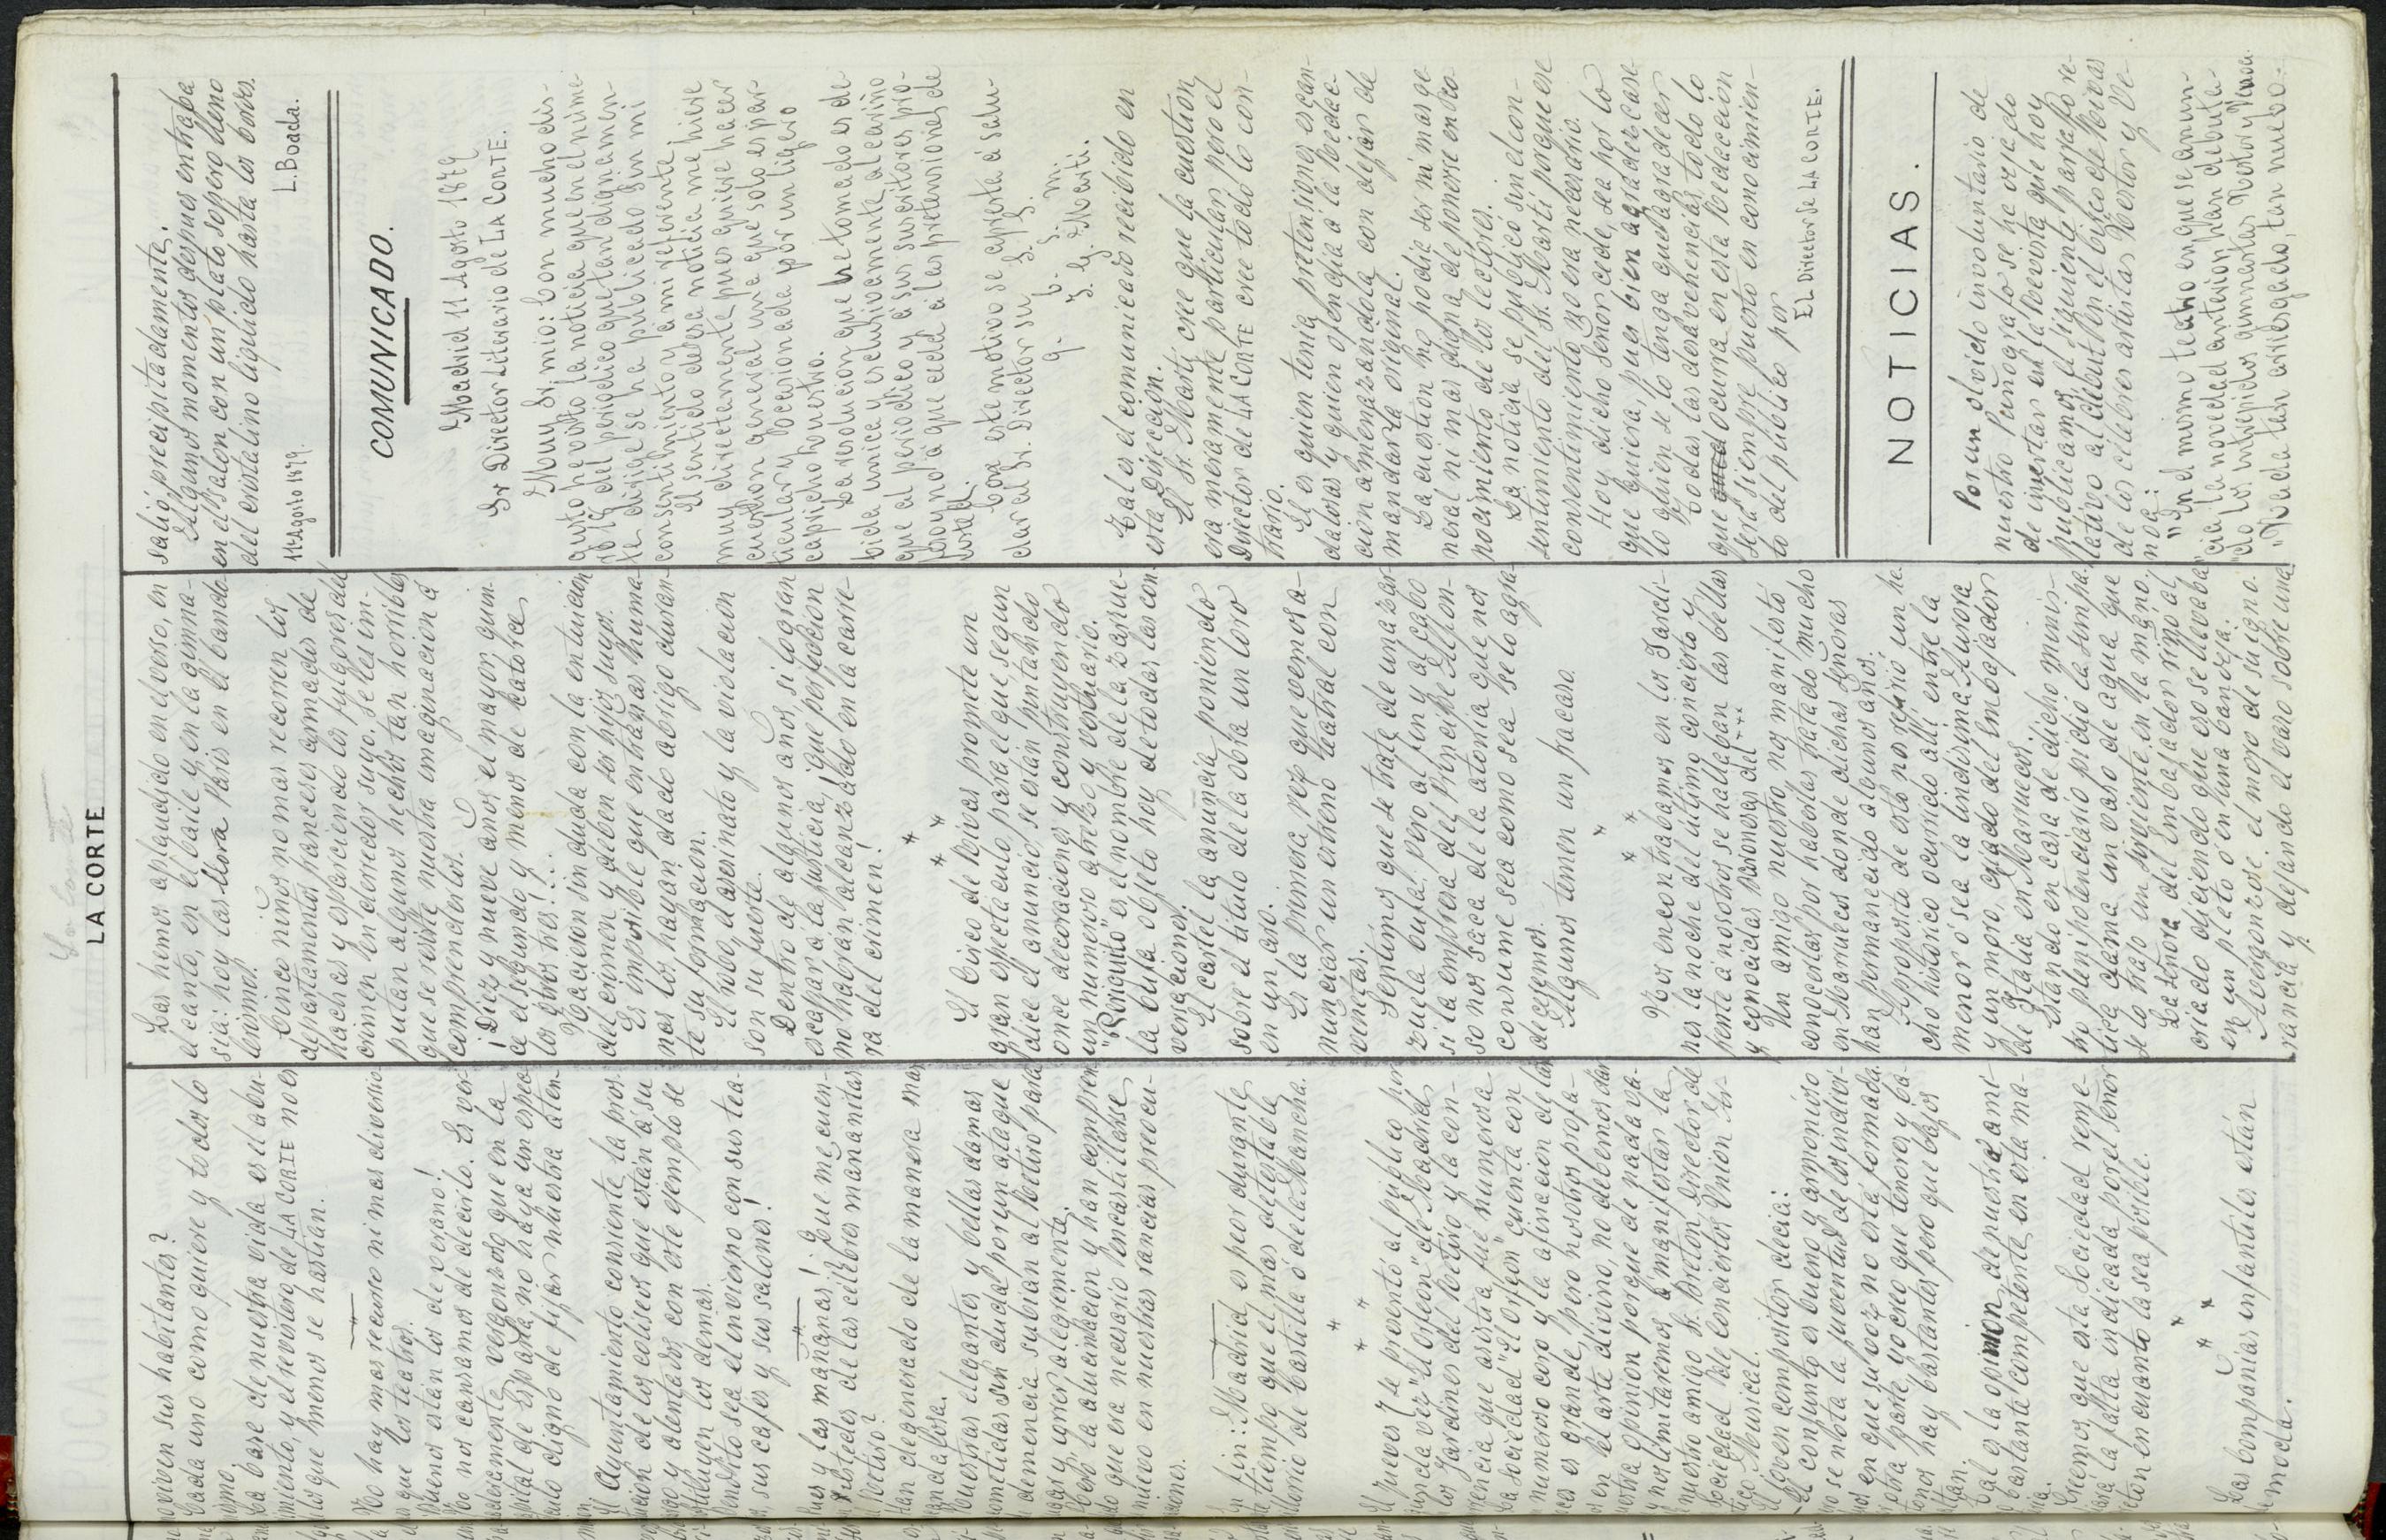 LA CORTE
viven sus habitantes?
Cada uno como quiere y todos lo
mismo.
La base de nuestra vida es el abu-
rimiento, y el revistero de LA CORTE no es
los que menos se hartían.
No hay mas recurso ni mas diversio-
que los teatros.
Buenos están los de verano!
No nos cansamos de decirlo. Es ver-
daderamente vergonzoso que en la
capital de España no haya un espec-
táculo digno de fijar nuestra aten-
El Ayuntamiento consiente la pros-
de los coliseos que están á su
y alentados con este ejemplo se
los demas.
Bendito sea el invierno con sus tea-
sus cafes y sus salones!
Pues y las mañanas! ¿que me cuen-
ustedes de las célebres mañanitas
Retiro?
Han degenerado de la manera mas
Nuestras elegantes y bellas damas
sin duda por un ataque
demencia subian al Retiro para
y correr alegremente.
Pero la alucinacion y han compren-
do que era necesario encastillarse
nuevo en nuestras rancias preocu-
paciones.
En fin: Madrid es peor durante
este tiempo que el mas detestable
villorrio de Castilla ó de la Mancha.
* * *
El jueves 7 se presentó al público por
segunda vez "El Orfeon" de Madrid
los Jardines del Retiro y la con-
currencia que asistia fué numerosa.
La sociedad "El Orfeon" cuenta con
numeroso coro y la afinacion de las
voces es grande, pero nosotros profa-
nos en el arte divino, no debemos dar
nuestra opinion porque de nada va-
y nos limitaremos á manifestar la
nuestro amigo Sr. Breton, Director de
Sociedad de Conciertos Union Ar-
tistico Musical.
El joven compositor decia:
El conjunto es bueno y armonioso
se nota la juventud de los indivi-
duos en que su voz no está formada.
otra parte yo creo que tenores y ba-
jos hay bastantes pero que bajos
faltan.
Tal es la opinion de nuestro ami-
go bastante competente en esta ma-
teria.
Creemos que esta Sociedad reme-
diará la falta indicada por el señor
Breton en cuanto la sea posible.
* * *
Las compañias infantiles están
de moda.
Las hemos aplaudido en el verso, en
el canto, en el baile y en la gimna-
sia: hoy las llora Paris en el bando-
lerismo.
Cinco niños no mas recorren los
departamentos franceses armados de
hachas y esparciendo los fulgores del
crimen en derredor suyo. Se les im-
putan algunos hechos tan horribles
que se resiste nuestra imaginacion á
comprenderlos.
¡Diez y nueve años el mayor, quin-
ce el segundo y menos de catorce
los otros tres!...
Nacieron sin duda con la intuicion
del crimen y deben ser hijos suyos.
Es imposible que entrañas huma-
nas los hayan dado abrigo duran-
te su formacion.
El robo, el asesinato y la violacion
son su fuerte.
Dentro de algunos años, si logran
escapar á la justicia ¡que perfeccion
no habrán alcanzado en la carre-
ra del crimen!
* * *
El Circo de Rivas promete un
gran espectáculo, para el que segun
dice el anuncio, se están pintando
once decoraciones y construyendo
un numeroso atrezo y vestuario.
"Periquito" es el nombre de la zarzue-
la bufa objeto hoy de todas las con-
versaciones.
El cartel la anuncia poniendo
sobre el título de la obra un loro
en un aro.
Es la primera vez que vemos a-
nunciar un estreno teatral con
viñetas.
Sentimos que se trate de una zar-
zuela bufa, pero al fin y al cabo
si la empresa del Principe Alfon-
so nos saca de la atonia que nos
consume sea como sea se lo agra-
deceremos.
Algunos temen un fracaso.
* * *
Nos encontrabamos en los Jardi-
nes la noche del último concierto y
frente á nosotros se hallaban las bellas
y conocidas Baronesas del...
Un amigo nuestro, nos manifestó
conocerlas por haberlas tratado mucho
en Marruecos donde dichas Señoras
han permanecido algunos años.
A proposito de esto nos refirió, un he-
cho histórico ocurrido allí entre la
menor ó sea la lindisima Aurora
y un moro, criado del Embajador
de Italia en Marruecos.
Estando en casa de dicho minis-
tro plenipotenciario pidió la simpá-
tica dama un vaso de agua que
se lo trajo un sirviente en la mano.
La señora del Embajador riñó al
criado diciendo que eso se llevaba
en un plato ó en una bandeja.
Avergonzose el moro de su igno-
rancia y dejando el vaso sobre una
salió precipitadamente.
Algunos momentos despues entraba
en el salon con un plato sopero lleno
del cristalino liquido hasta los bordes.
11 Agosto 1879. L. Boada.
COMUNICADO.
Madrid 11 Agosto 1879
Sr Director Literario de LA CORTE.
Muy Sr. mio: Con mucho dis-
gusto he visto la noticia que en el núme-
ro 18 del periodico que tan dignamen-
te dirige se ha publicado sin mi
consentimiento y á mi referente.
El sentido de esa noticia me hiere
muy directamente pues quiere hacer
cuestion general una que solo es par-
ticular y ocasionada por un ligero
capricho nuestro.
La resolucion que he tomado es de-
bida única y esclusivamente al cariño
que al periódico y á sus suscritores pro-
feso y no á que ceda á las pretensiones de
usted.
Con este motivo se ofrece á salu-
dar al Sr. Director su S. S.
q. b. s. m.
J. G. Marti.
Tal es el comunicado recibido en
esta Direccion.
El Sr. Marti cree que la cuestion
era meramente particular, pero el
Director de LA CORTE cree todo lo con-
trario.
El es quien tenia pretensiones escan-
dalosas y quien ofendia á la Redac-
cion amenazandola con dejar de
mandarla original.
La cuestion no podia ser ni mas ge-
neral ni mas digna de ponerse en co-
nocimiento de los lectores.
La noticia se publicó sin el con-
sentimiento del Sr. Marti porque ese
consentimiento no era necesario.
Hoy dicho Señor cede, sea por lo
que quiera, pues bien agradezcase-
lo quien se lo tenga que agradecer.
Todas las desavenencias, todo lo
que ocurra en esta Redaccion
será siempre puesto en conocimien-
to del público por
EL Director de LA CORTE.
NOTICIAS.
Por un olvido involuntario de
nuestro peñografo se ha dejado
de insertar en la Revista que hoy
publicamos el siguiente parrafo re-
lativo al debut en el Circo de Rivas
de los célebres artistas Nestor y Ve-
noa:
"En el mismo teatro en que se anun-
"cia la novedad anterior, han debuta-
"do los intrepidos gimnastas Nestor y Venoa.
"Nada tan arriesgado, tan nuevo..